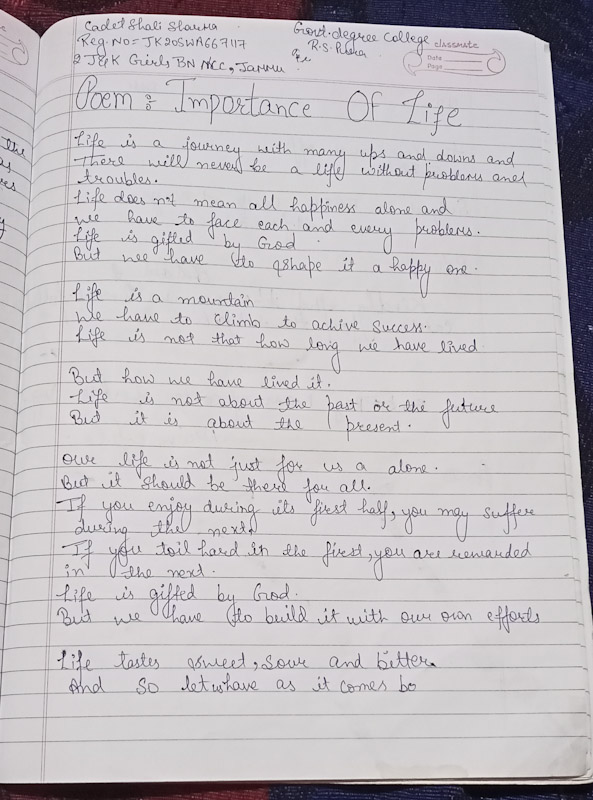 Cadet Shali Sharma
Reg.No = JK20SWA667117
2 J&K Girls BN NCC, Jammu
Govt. degree College
R.S. Pura
classmate
Date
Page
Poem : Importance Of Life
Life is a journey with many ups and downs and
There will never be a life without problems and
troubles.
Life does not mean all happiness alone and
we have to face each and every problems.
Life is gifted by God
But we have to shape it a happy one.
Life is a mountain
We have to climb to achive success.
Life is not that how long we have lived
But how we have lived it.
Life is not about the past or the future
But it is about the present.
Our life is not just for us a alone.
But it should be there for all.
If you enjoy during its first half, you may suffer
during the next.
If you toil hard in the first, you are rewarded
in the next.
Life is gifted by God.
But we have to build it with our own efforts
Life tastes sweet, sour and better.
And so let us have as it comes bo